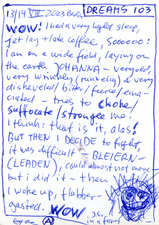 13/14 VIII 2023 Berlin DREAMS 103
WOW! I had a very light sleep,
yet day + late coffee, sooooo:
I am on a wide field, laying on
the earth JOHANNA – very old,
very wrinkly (runkelig) & very
dishevelled / bitter / fierce / ema
ciated – tries to choke/
suffocate/strangle me
I thunk: that is it, alas!
BUT THEN I DECIDE to fight,
it was difficult – BLEIERN –
(LEADEN), could almost not move
but i did it – then
I woke up, flabber-
gasted. WOW